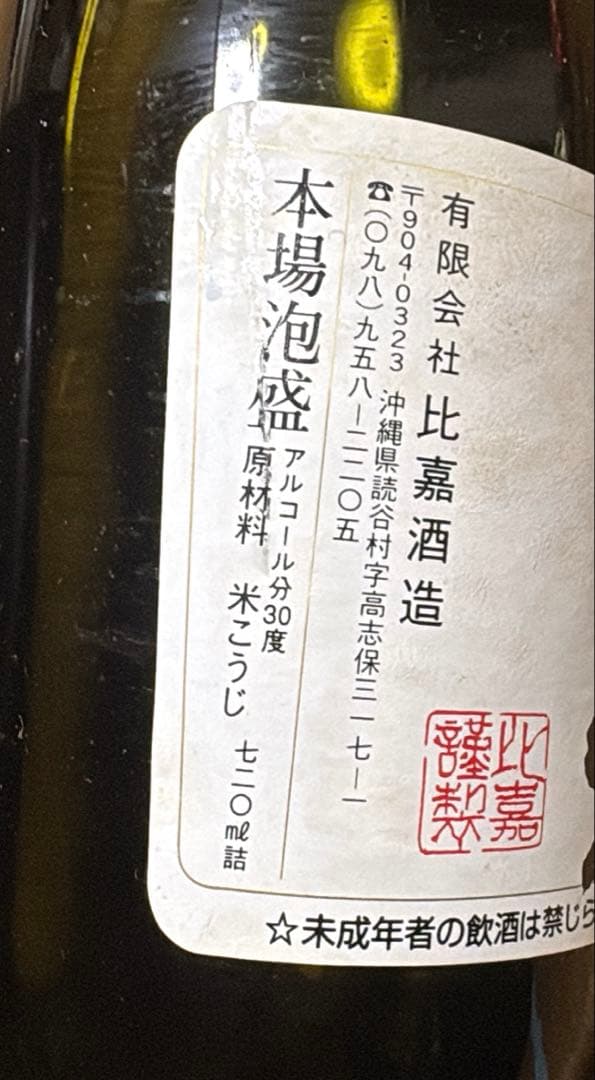 有限会社 比嘉酒造
〒904-0323 沖縄県読谷村字高志保三一七ー一
☎(〇九八)九五八ー二二〇五
本場泡盛
アルコール分30度
原材料 米こうじ 七二〇㎖詰
比嘉
謹製
☆未成年者の飲酒は禁じら